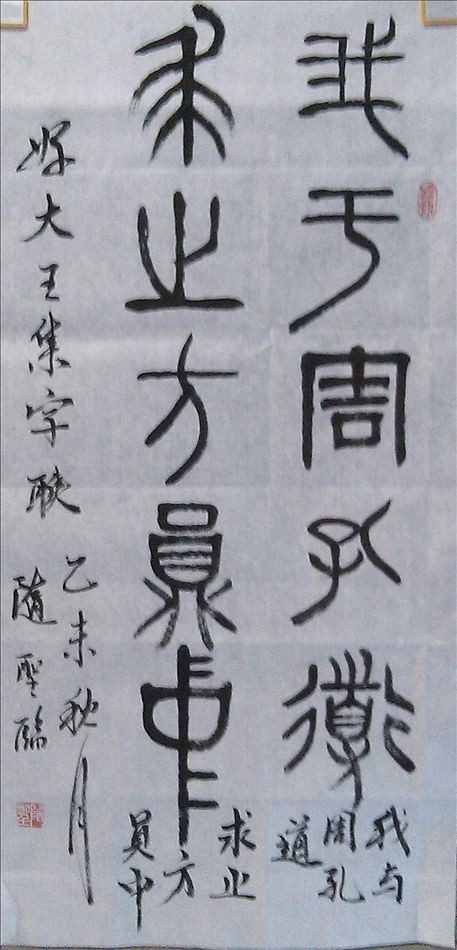 我于周孔道
我与
周孔
道
求之方員中
求之
方
員中
好大王集字联
乙未秋月
隨聖臨